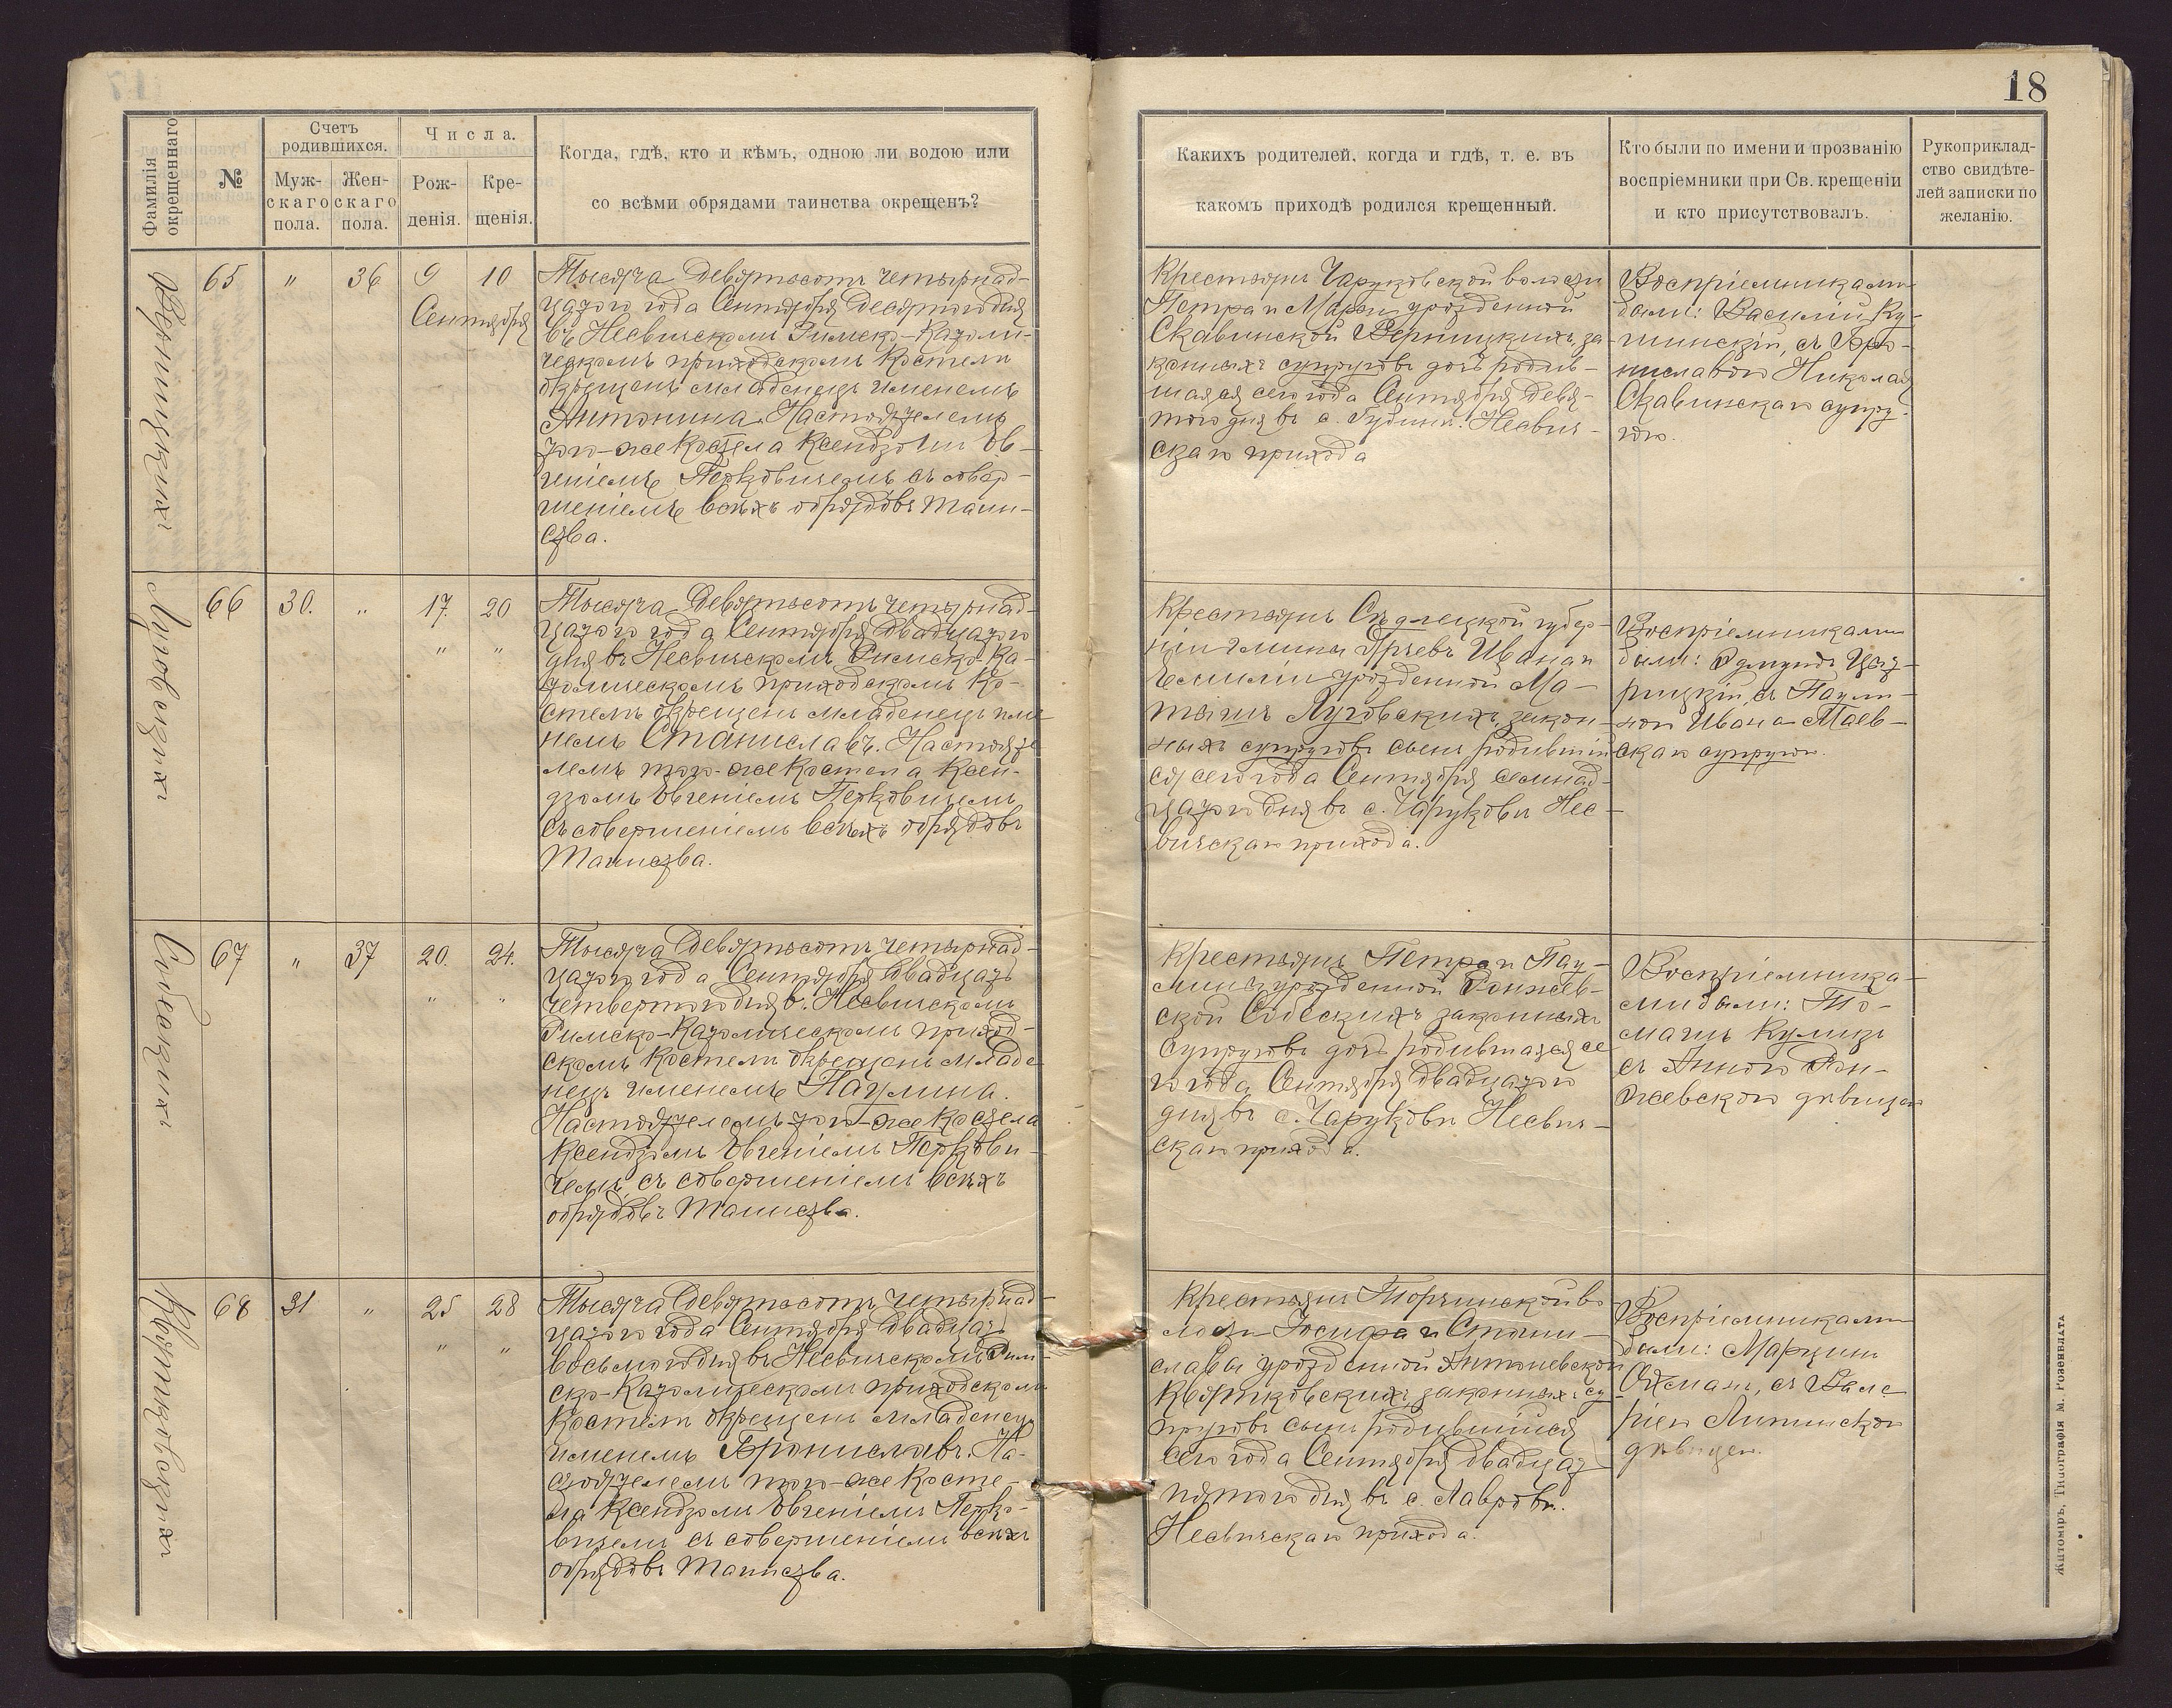 18
Фамилія
окрещеннаго
№
Счетъ
родившихся.
Муж-
скаго
пола.
Жен-
скаго
пола.
Числа.
Рож-
денія.
Кре-
щенія.
Когда, гдѣ, кто и кѣмъ, одною ли водою или
со всѣми обрядами таинства окрещенъ?
Какихъ родителей, когда и гдѣ, т. е. въ
какомъ приходѣ родился крещенный.
Кто были по имени и прозванію
воспріемники при Св. крещеніи
и кто присутствовалъ.
Рукоприклад-
ство свидѣте-
лей записки по
желанію.
65 " 36 9 10
Сентября
Тысяча девятьсотъ четырнад-
цатого года Сентября десятого дня
въ Несвичскомъ Римско-Католи-
ческомъ приходскомъ костелѣ
окрещенъ младенецъ именемъ
Антонина. Настоятелемъ
того-же костела Ксендзомъ Ев-
геніемъ Перковичемъ съ совер-
шеніемъ всѣхъ обрядовъ Таин-
ства.
Крестьянъ Чаруковской волости
Петра и Маріи урожденной
Скавинской Верницкихъ, за-
конныхъ супруговъ дочь родив-
шаяся сего года Сентября девя-
того дня въ с. Несвич-
скаго прихода
Воспріемниками
были: Василій Ку-
чинскій, съ Бро-
ниславою Николая
Скавинскаго супру-
гою.
Луговскихъ
66 30. " 17. 20
" "
Тысяча девятьсотъ четырнад-
цатого года Сентября двадцатого
дня въ Несвичскомъ Римско-Ка-
толическомъ приходскомъ Ко-
стелѣ окрещенъ младенецъ име-
немъ Станиславъ. Настояте-
лемъ того-же Костела Ксен-
дзомъ Евгеніемъ Перковичемъ
съ совершеніемъ всѣхъ обрядовъ
Таинства.
Крестьянъ Сѣдлецкой губер-
ніи гмины Ивана и
Емиліи урожденной Ма-
Луговскихъ, закон-
ныхъ супруговъ сынъ родившій
ся сего года Сентября семнад-
цатого дня въ с. Чаруковѣ Нес-
вичскаго прихода.
Воспріемниками
были: Эдмундъ
съ Паули-
ной Ивана Маев-
скаго супругою.
Собескихъ
67 " 37 20. 24.
" "
Тысяча девятьсотъ четырнад-
цатого года Сентября двадцать
четвертого дня въ Несвичскомъ
Римско-Католическомъ приход-
скомъ Костелѣ окрещенъ младе-
нецъ именемъ Паулина.
Настоятелемъ того-же Костела
Ксендзомъ Евгеніемъ Перкови-
чемъ, съ совершеніемъ всѣхъ
обрядовъ Таинства.
Крестьянъ Петра и Пау-
лины урожденной Ронжев-
ской Собескихъ законныхъ
супруговъ дочь родившаяся се-
го года Сентября двадцатого
дня въ с. Чаруковѣ Несвич-
скаго прихода.
Воспріемника-
ми были: То-
машъ Куликъ
съ Анною Рон-
жевскою дѣвицею
Квятковскихъ
68 31 " 25 28
" "
Тысяча девятьсотъ четырнад-
цатого года Сентября двадцать
восьмого дня въ Несвичскомъ Рим-
ско-Католическомъ приходскомъ
Костелѣ окрещенъ младенецъ
именемъ Брониславъ. На-
стоятелемъ того-же Косте-
ла Ксендзомъ Евгеніемъ Перко-
вичемъ съ совершеніемъ всѣхъ
обрядовъ Таинства.
Крестьянъ Торчинской во-
лости Іосифа и Стани-
славы урожденной Антоневской
Квятковскихъ, законныхъ су-
пруговъ сынъ родившійся
сего года Сентября двадцать
пятого дня въ с. Лавровѣ.
Несвичскаго прихода.
Воспріемниками
были: Марцинъ
съ Вале-
ріею Липинскою
дѣвицею.
Житоміръ, Типографія М. Розенблата